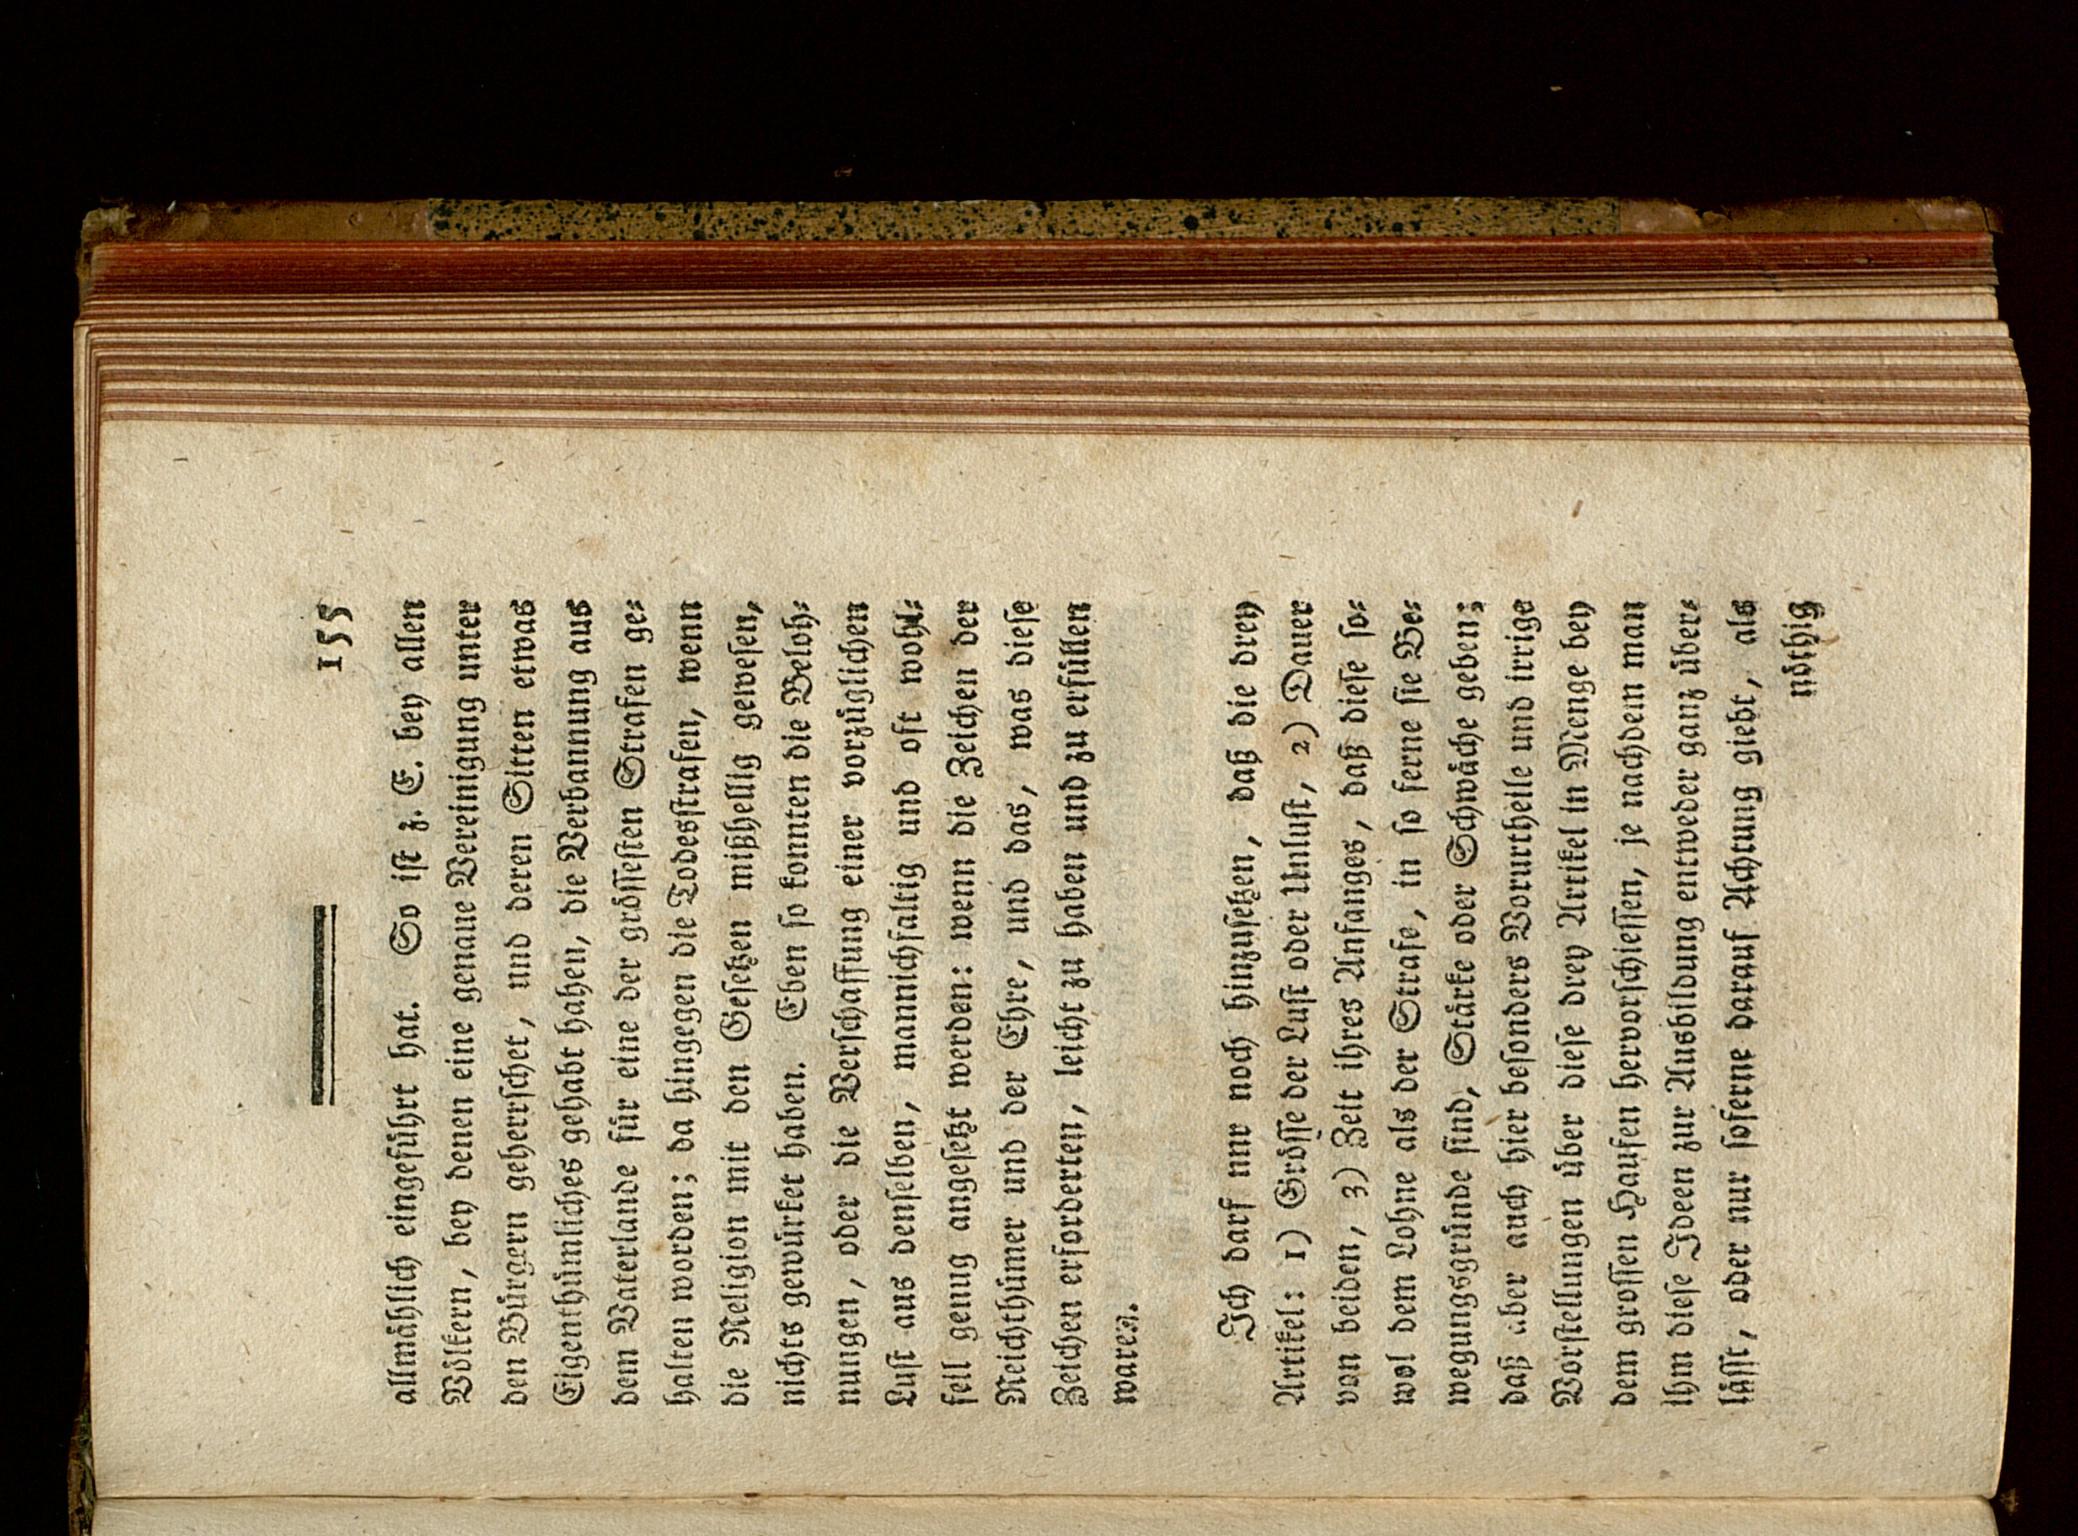 155
allmählich eingeführt hat. So ist z. E. bey allen
Völkern, bey denen eine genaue Vereinigung unter
den Bürgern geherrschet, und deren Sitten etwas
Eigenthümliches gehabt haben, die Verbannung aus
dem Vaterlande für eine der grössesten Strafen ge-
halten worden; da hingegen die Todesstrafen, wenn
die Religion mit den Gesetzen mißhellig gewesen,
nichts gewürket haben. Eben so konnten die Beloh-
nungen, oder die Verschaffung einer vorzüglichen
Lust aus denselben, mannichfaltig und oft wohl-
feil genug angesetzt werden: wenn die Zeichen der
Reichthümer und der Ehre, und das, was diese
Zeichen erforderten, leicht zu haben und zu erfüllen
waren.
Ich darf nur noch hinzusetzen, daß die drey
Artikel: 1) Grösse der Lust oder Unlust, 2) Dauer
von beiden, 3) Zeit ihres Anfanges, daß diese so-
wol dem Lohne als der Strafe, in so ferne sie Be-
wegungsgründe sind, Stärke oder Schwäche geben;
daß aber auch hier besonders Vorurtheile und irrige
Vorstellungen über diese drey Artikel in Menge bey
dem grossen Haufen hervorschiessen, je nachdem man
ihm diese Ideen zur Ausbildung entweder ganz über-
lässt, oder nur soferne darauf Achtung giebt, als
nöthig